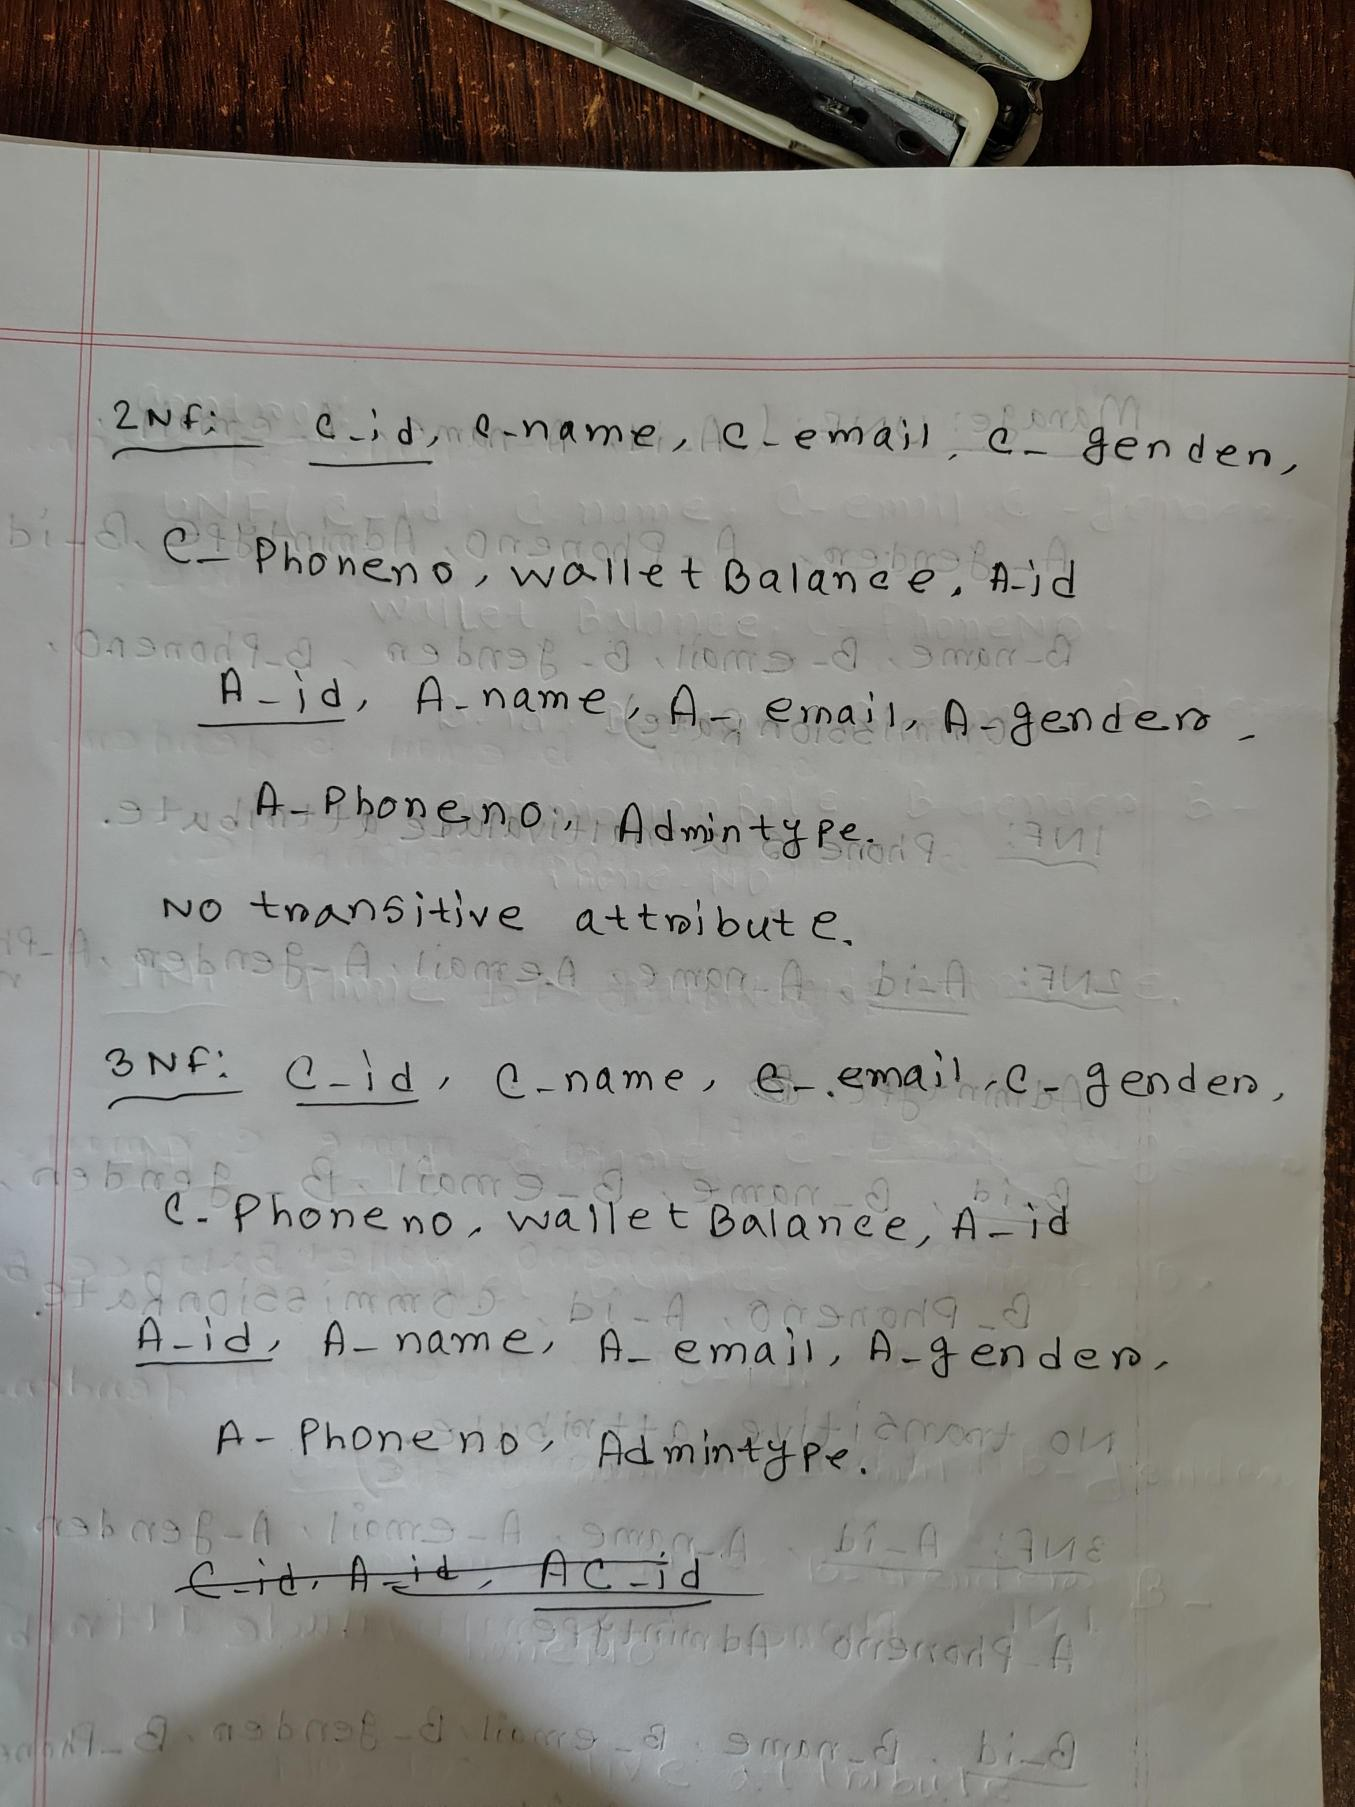 2NF: C-id, C-name, C-email, C-gender,
C-Phoneno, walletBalance, A-id
A-id, A-name, A-email, A-gender,
A-Phoneno, Admintype.
NO transitive attribute.
3NF: C-id, C-name, C-email, C-gender,
C-Phoneno, walletBalance, A-id
A-id, A-name, A-email, A-gender,
A-Phoneno, Admintype.
C-id, A-id, AC-id